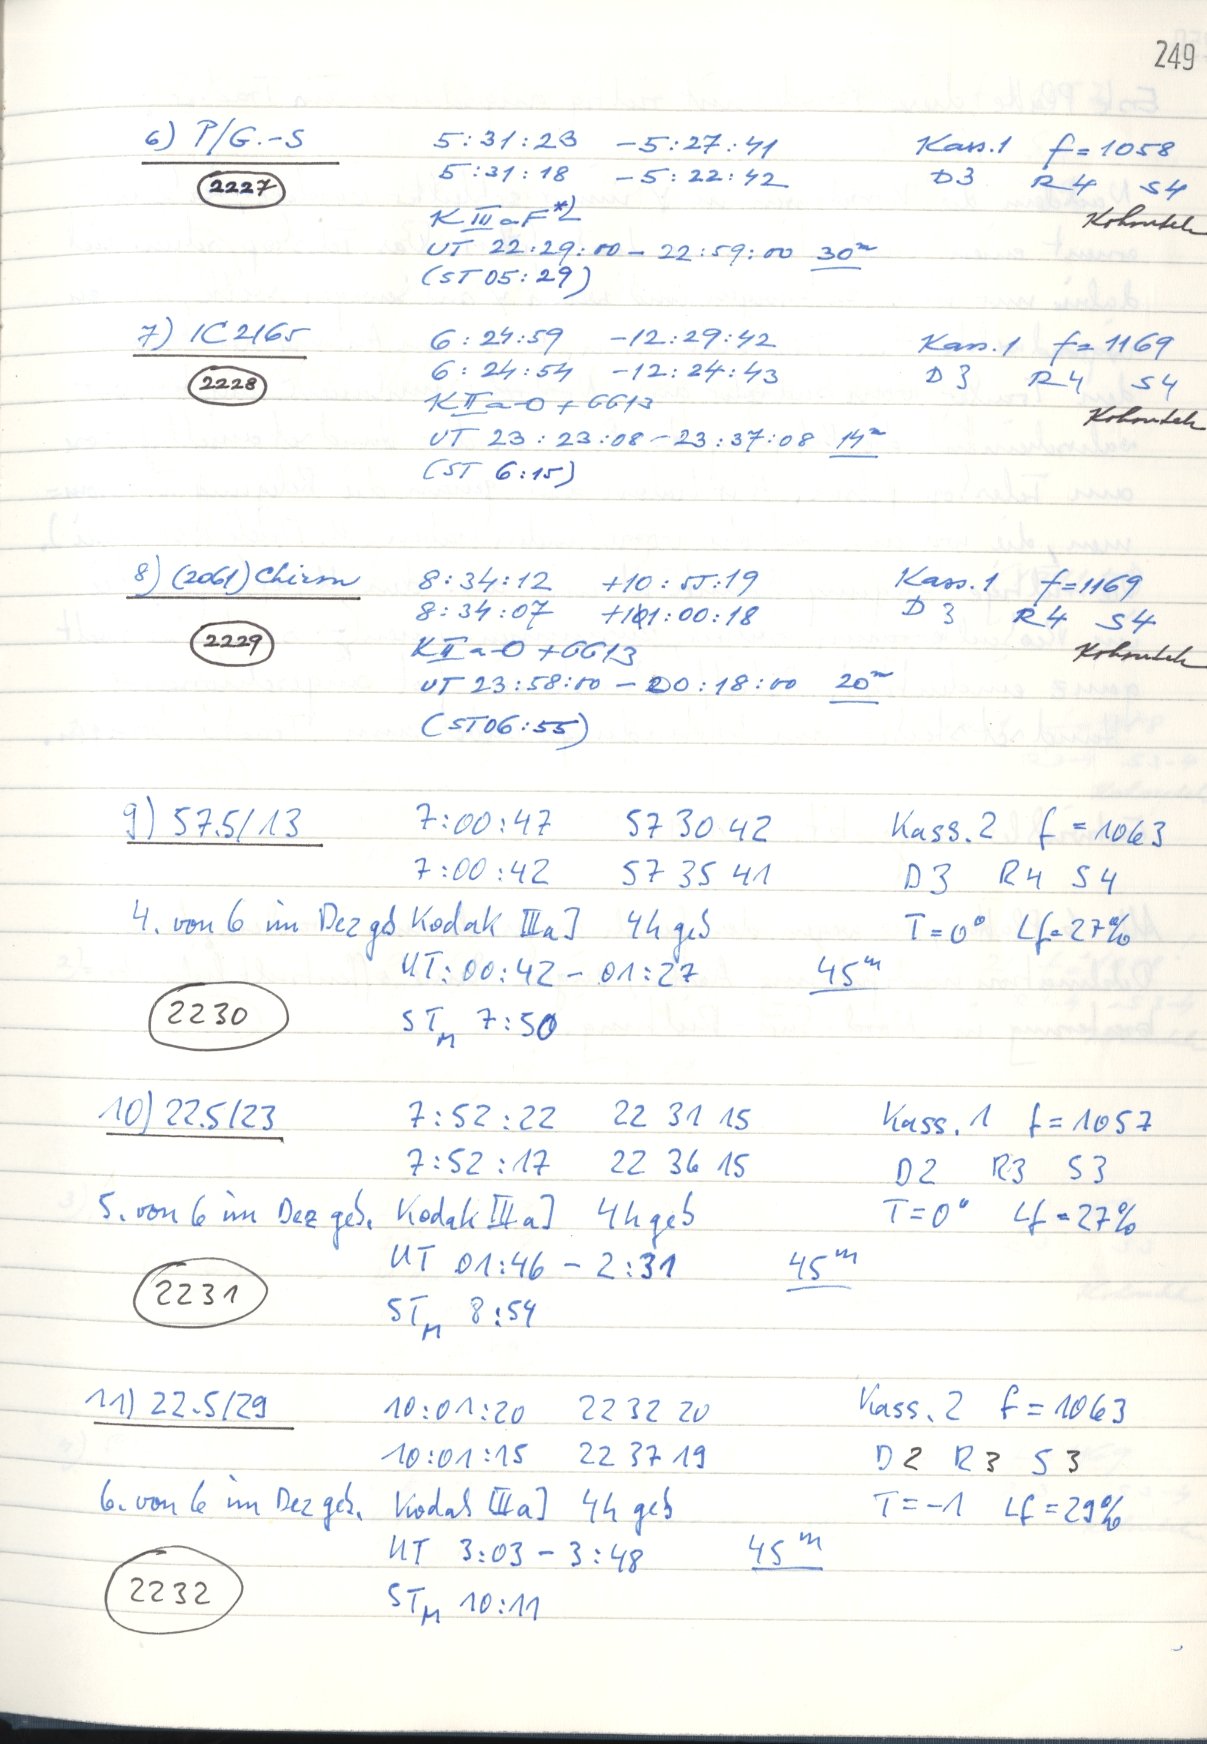 249
6) P/G.-S 5:31:23 -5:27:41 Kass.1 f=1058
2227 5:31:18 -5:22:42 D3 R4 S4
K III a F *) Kohoutek
UT 22:29:00 - 22:59:00 30m
(ST 05:29)
7) IC2165 6:24:59 -12:29:42 Kass.1 f=1169
2228 6:24:54 -12:24:43 D3 R4 S4
K II a-O + GG13 Kohoutek
UT 23:23:08 - 23:37:08 14m
(ST 6:15)
8) (2061) Chiron 8:34:12 +10:55:19 Kass.1 f=1169
8:34:07 +11:00:18 D3 R4 S4
2229 K II a-O + GG13 Kohoutek
UT 23:58:00 - 00:18:00 20m
(ST 06:55)
9) 57.5/13 7:00:47 57 30 42 Kass.2 f=1063
7:00:42 57 35 41 D3 R4 S4
4. von 6 im Dez geb Kodak IIIaJ 4h geb T=0° Lf=27%
UT: 00:42 - 01:27 45m
2230 STM 7:50
10) 22.5/23 7:52:22 22 31 15 Kass.1 f=1057
7:52:17 22 36 15 D2 R3 S3
5. von 6 im Dez geb. Kodak IIIaJ 4h geb T=0° Lf=27%
UT 01:46 - 2:31 45m
2231 STM 8:54
11) 22.5/29 10:01:20 22 32 20 Kass.2 f=1063
10:01:15 22 37 19 D2 R3 S3
6. von 6 im Dez geb. Kodak IIIaJ 4h geb T=-1 Lf=29%
UT 3:03 - 3:48 45m
2232 STM 10:11